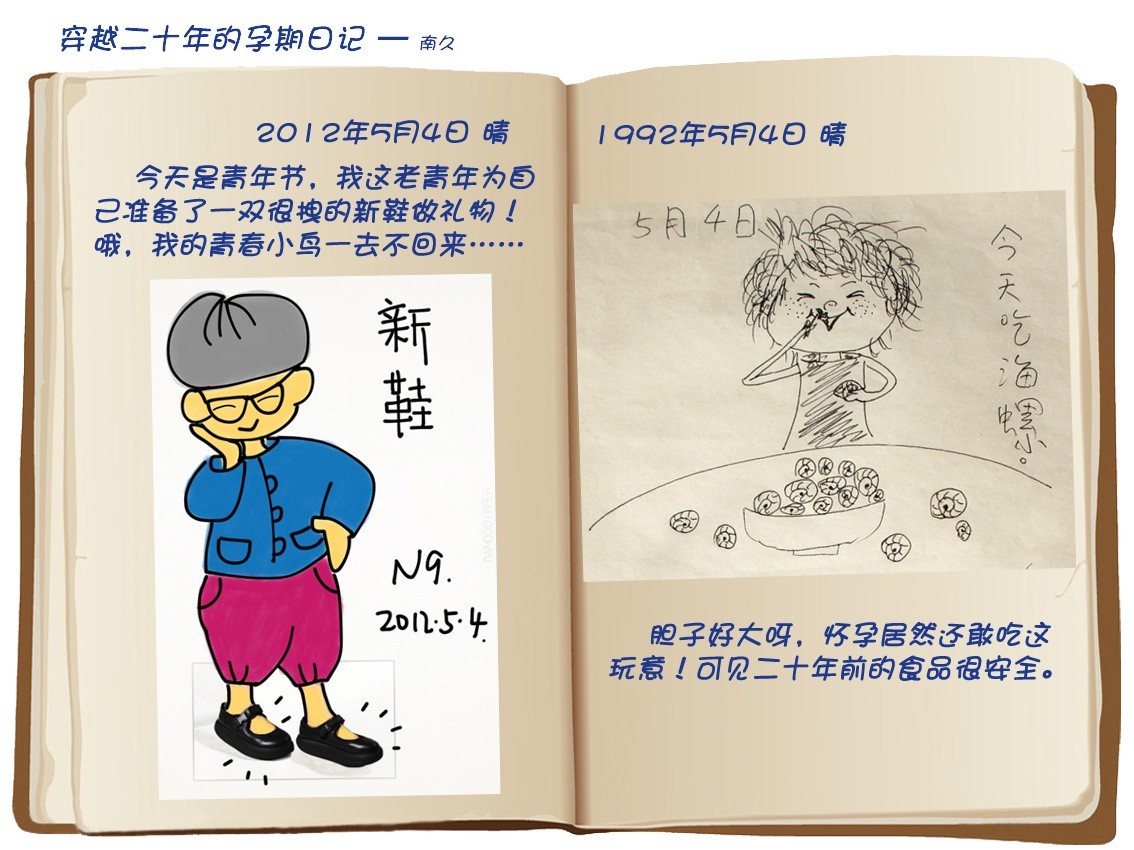 穿越二十年的孕期日记 — 南久
2012年5月4日 晴
今天是青年节，我这老青年为自
己准备了一双很拽的新鞋做礼物！
哦，我的青春小鸟一去不回来……
新鞋
N9.
2012.5.4.
1992年5月4日 晴
5月4日
今天吃海螺。
胆子好大呀，怀孕居然还敢吃这
玩意！可见二十年前的食品很安全。